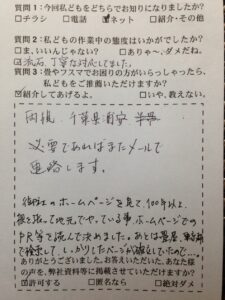 質問1:今回私どもをどちらでお知りになりましたか?
□チラシ □電話 ☑ネット □紹介・その他
質問2:私どもの作業中の態度はいかがでしたか?
□ま、いいんじゃない? □ありゃ~、ダメだね。
☑流石、丁寧な対応でした。
質問3:畳やフスマでお困りの方がいらっしゃったら、
私どもをご推薦いただけますか?
☑紹介してあげるよ。 □いや、教えない。
千葉県浦安
必要であればまたメールで
連絡します。
御社のホームページを見て、100年以上
地元でやっている事 ホームページでの
PR等を読んで決めました。あとは畳屋、
で検索して しっかりしたページが
ありがとうございました。お答えいただいた、あなた様
の声を、弊社資料等に掲載させていただけますか?
☑許可する □匿名なら □絶対ダメ